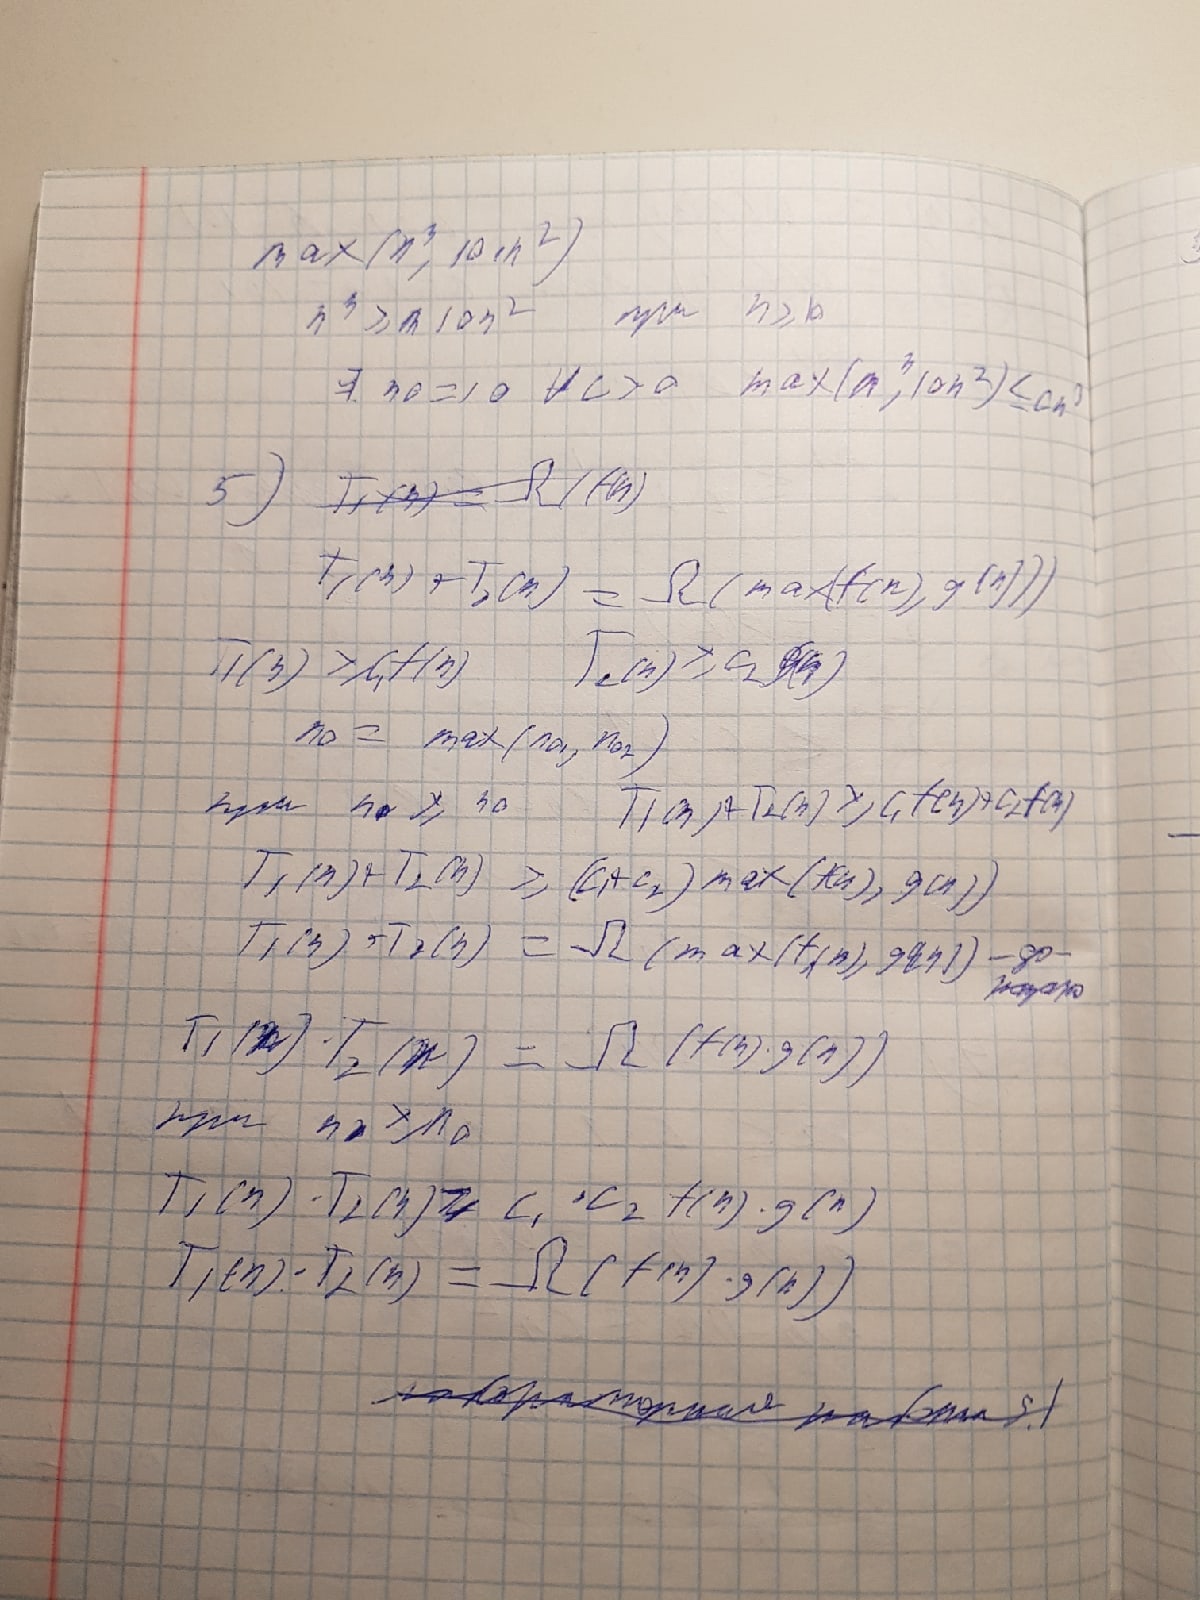 max(n³, 10n²)
n³ ≥ 10n² при n ≥ 10
∃ n0 = 10 ∀ c > 0 max(n³, 10n²) ≤ cn³
5) T₁(n) = Ω(f(n)
T₁(n) + T₂(n) = Ω(max(f(n), g(n)))
T₁(n) ≥ c₁f(n) T₂(n) ≥ c₂g(n)
n0 = max(n01, n02)
при n ≥ n0 T₁(n) + T₂(n) ≥ c₁f(n) + c₂f(n)
T₁(n) + T₂(n) ≥ (c₁ + c₂) max(f(n), g(n))
T₁(n) + T₂(n) = Ω (max(f(n), g(n)) – до-
T₁(n) · T₂(n) = Ω (f(n) · g(n))
при n ≥ n0
T₁(n) · T₂(n) ≥ c₁ · c₂ f(n) · g(n)
T₁(n) · T₂(n) = Ω(f(n) · g(n))